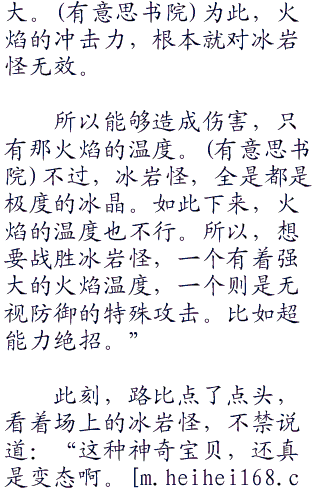 大。(有意思书院)为此，火
焰的冲击力，根本就对冰岩
怪无效。
所以能够造成伤害，只
有那火焰的温度。(有意思书
院)不过，冰岩怪，全是都是
极度的冰晶。如此下来，火
焰的温度也不行。所以，想
要战胜冰岩怪，一个有着强
大的火焰温度，一个则是无
视防御的特殊攻击。比如超
能力绝招。”
此刻，路比点了点头，
看着场上的冰岩怪，不禁说
道：“这种神奇宝贝，还真
是变态啊。[m.heihei168.c